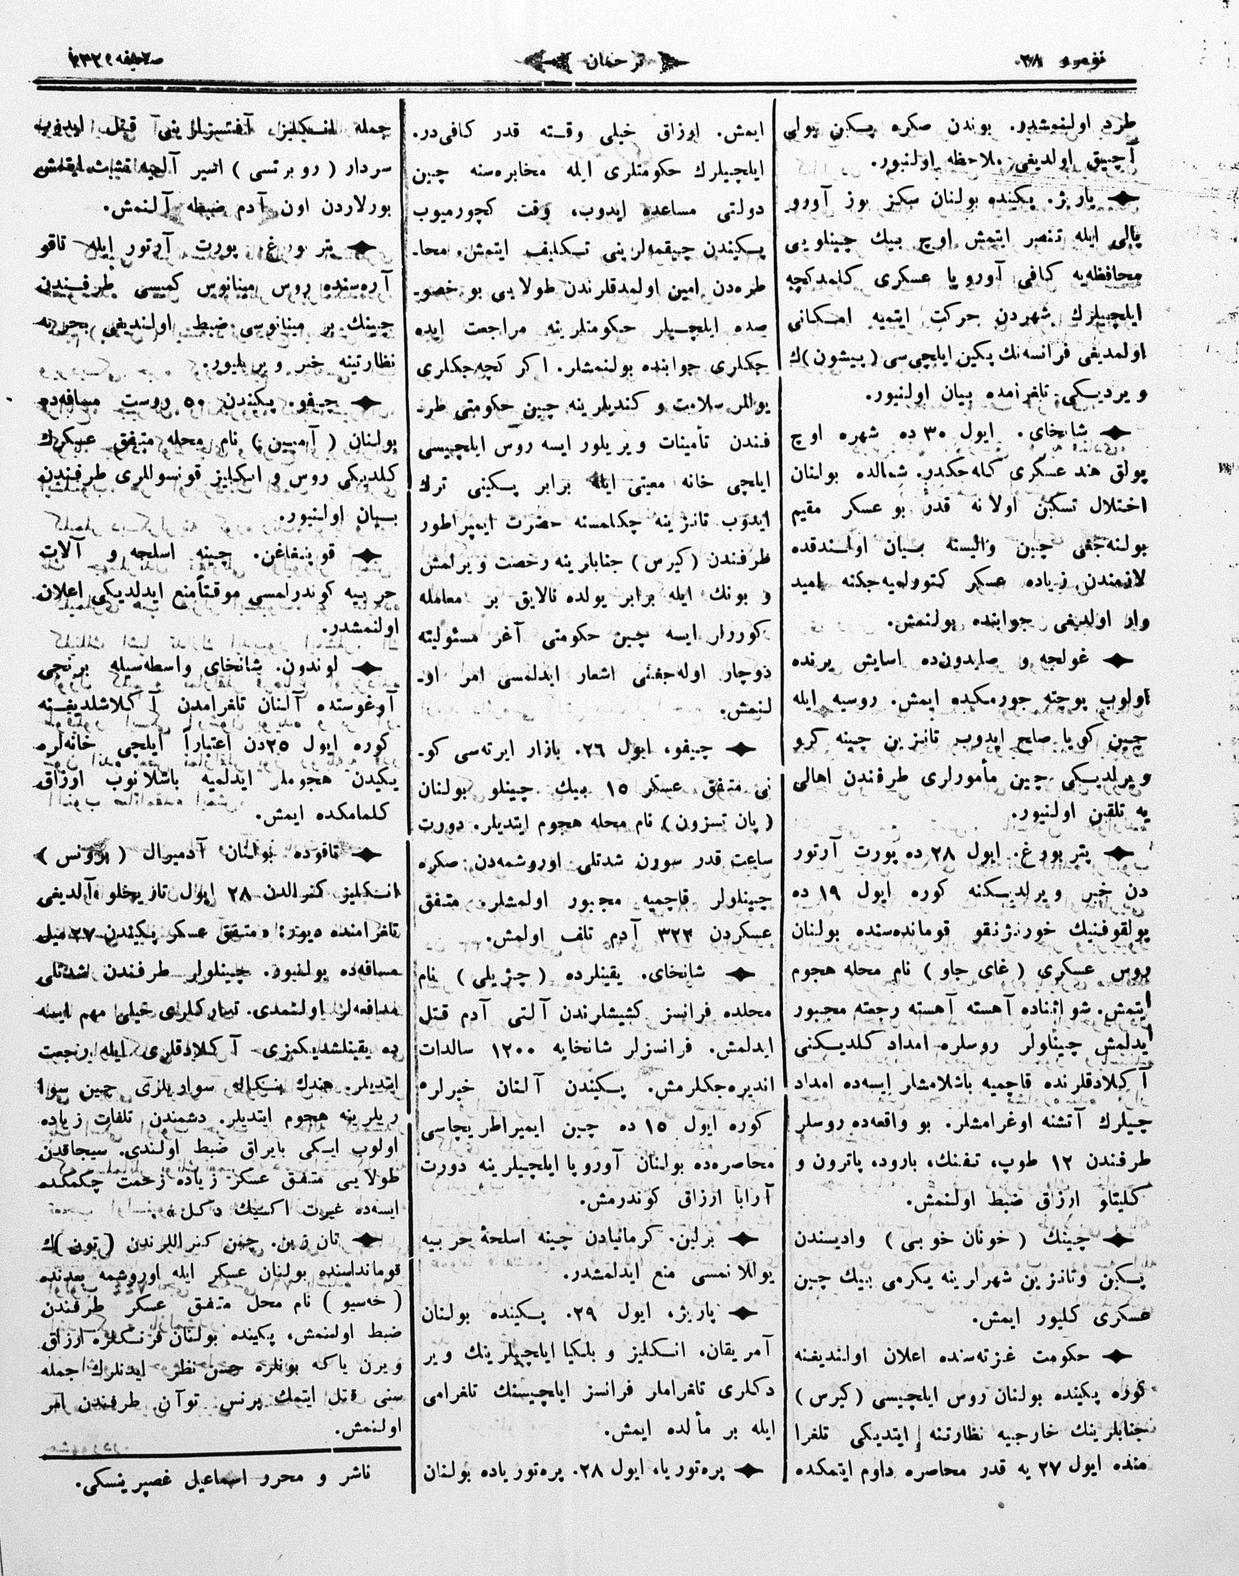 نومرو ۲۸
ترجمان
صحیفه
طرد اولنمشدر. بوندن صکره پکین یولی
آچیق اولدیغی ملاحظه اولنیور.
پاریژ. پکینده بولنان سکز یوز آوروـ
پالی ایله تنصر ایتمش اوچ بیك چینلویی
محافظه‌یه کافی آوروپا عسکری کلمدکچه
ایلچیلرك شهردن حرکت ایتمیه امکانی
اولمدیغی فرانسه‌نك پکین ایلچی‌سی (پیشون)ك
ویردیکی تلغرامده بیان اولنیور.
شانخای. ایول ۳۰ ده شهره اوچ
پولق هند عسکری کله‌جکدر. شمالده بولنان
اختلال تسکین اولانه قدر بو عسکر مقیم
بولنه‌جغی چین والیسنه بیان اولندقده
لازمندن زیاده عسکر کتورلمیه‌جکنه امید
وار اولدیغی جوابنده بولنمش.
غولجه و صایدون‌ده اسایش یرنده
اولوب پوچته جورمکده ایمش. روسیه ایله
چین کویا صلح ایدوب تانزین چینه کرو
ویرلدیکی چین مأمورلری طرفندن اهالی
یه تلقین اولنیور.
پتربورغ. ایول ۲۸ ده پورت آرتور
دن خبر ویرلدیکنه کوره ایول ۱۹ ده
پولقوفنیك خورنژنقو قوماندەسنده بولنان
روس عسکری (غای جاو) نام محله هجوم
ایتمش. شو اثناده آهسته آهسته رجعته مجبور
ایدلمش چینلولر روسلره امداد کلدیکنی
آکلادقلرنده قاچمیه باشلامشلر ایسه‌ده امداد
چیلرك آتشنه اوغرامشلر. بو واقعه‌ده روسلر
طرفندن ۱۲ طوپ، تفنك، بارود، پاترون و
کلیتلو ارزاق ضبط اولنمش.
چینك (خونان خوبی) وادیسندن
پکین وتانزین شهرلرینه یکرمی بیك چین
عسکری کلیور ایمش.
حکومت غزته‌سنده اعلان اولندیغنه
کوره پکینده بولنان روس ایلچیسی (کیرس)
جنابلرینك خارجیه نظارتنه ایتدیکی تلغرا
منده ایول ۲۷ یه قدر محاصره داوم ایتمکده
ایمش. ارزاق خیلی وقته قدر کافی‌در.
ایلچیلرك حکومتلری ایله مخابره‌سنه چین
دولتی مساعده ایدوب، وقت کچورمیوب
پکیندن چیقمه‌لرینی تکلیف ایتمش. محاـ
طره‌دن امین اولمدقلرندن طولایی بو خصوـ
صده ایلچیلر حکومتلرینه مراجعت ایده
جکلری جوابنده بولنمشلر. اکر کچه‌جکلری
یوللر سلامت و کندیلرینه چین حکومتی طرـ
فندن تأمینات ویریلور ایسه روس ایلچیسی
ایلچی خانه معیتی ایله برابر پکینی ترك
ایدوب تانزینه چکلمسنه حضرت ایمپراطور
طرفندن (کیرس) جنابلرینه رخصت ویرلمش
و بونك ایله برابر یولده نالایق بر معامله
کورلر ایسه چین حکومتی آغر مسئولیته
دوچار اوله‌جغنی اشعار ایدلمسی امر اوـ
لنمش.
چیفو، ایول ۲۶. بازار ایرته‌سی کوـ
نی متفق عسکر ۱۵ بیك چینلو بولنان
(پان تسزون) نام محله هجوم ایتدیلر. دورت
ساعت قدر سورن شدتلی اوروشمه‌دن صکره
چینلولر قاچمیه مجبور اولمشلر. متفق
عسکردن ۳۲۲ آدم تلف اولمش.
شانخای. یقینلرده (چژیلی) نام
محلده فرانسز کشیشلرندن آلتی آدم قتل
ایدلمش. فرانسزلر شانخایه ۱۲۰۰ سالدات
اندیره‌جکلرمش. پکیندن آلنان خبرلره
کوره ایول ۱۵ ده چین ایمپراطریچاسی
محاصره‌ده بولنان آوروپا ایلچیلرینه دورت
آرابا ارزاق کوندرمش.
برلین. کرمانیادن چینه اسلحهٔ حربیه
یوللانمسی منع ایدلمشدر.
پاریژ، ایول ۲۹. پکینده بولنان
آمریقان، انکلیز و بلکیا ایلچیلرینك ویر
دکلری تلغرامار فرانسز ایلچیسنك تلغرامی
ایله بر مآلده ایمش.
پره‌توریا، ایول ۲۸. پره‌توریاده بولنان
جمله انکلیز آفتسزلرینی قتل ایدوب
سردار (روبرتسی) اسیر آلمه تشبث ایتمش
بورلاردن اون آدم ضبطه آلنمش.
پتربورغ. پورت آرتور ایله تاقو
آره‌سنده روس مینانوس کمیسی طرفندن
چینك بر مینانوسی ضبط اولندیغی بحریه
نظارتینه خبر ویریلیور.
چیفو. پکندن ۵۰ وروست مسافه‌ده
بولنان (آمبین) نام محله متفق عسکرك
کلدیکی روس و انکلیز قونسوللری طرفندن
بیان اولنیور.
قوپنهاغن. چینه اسلحه و آلات
حربیه کوندرلمسی موقتاً منع ایدلدیکی اعلان
اولنمشدر.
لوندون. شانخای واسطه‌سیله برنجی
آوغوستده آلنان تلغرامدن آکلاشلدیغنه
کوره ایول ۲۵دن اعتباراً ایلچی خانه‌لره
یکیدن هجومه ایدلمیه باشلانوب ارزاق
کلمامکده ایمش.
تاقوده بولنان آدمیرال (برونس)
انکلیز کنرالدن ۲۸ ایول تاریخلو آلدیغی
تلغرامنده دیور: «متفق عسکر پکیندن ۲۷ میل
مسافه‌ده بولنیور. چینلولر طرفندن شدتلی
مدافعه‌لر اولنمدی. تدارکلری خیلی مهم ایسه
ده یقینلشدیکمزی آکلادقلری ایله رجعت
ایتدیلر. هندك بنکاله سواریلری چین سوا
ریلرینه هجوم ایتدیلر. دشمندن تلفات زیاده
اولوب ایکی بایراق ضبط اولندی. سیجاقدن
طولایی متفق عسکر زیاده زحمت چکمکده
ایسه‌ده غیرت اکسیك دکل».
تان زین. چین کنراللرندن (تون)ك
قومانداسنده بولنان عسکر ایله اوروشمه بعدنده
(خه‌سیو) نام محل متفق عسکر طرفندن
ضبط اولنمش، پکینده بولنان فرنکلره ارزاق
ویرن یاکه بونلره حسن نظر ایدنلرك جمله
سنی قتل ایتمك پرنس توآن طرفندن امر
اولنمش.
ناشر و محرر اسماعیل غصپرینسکی.